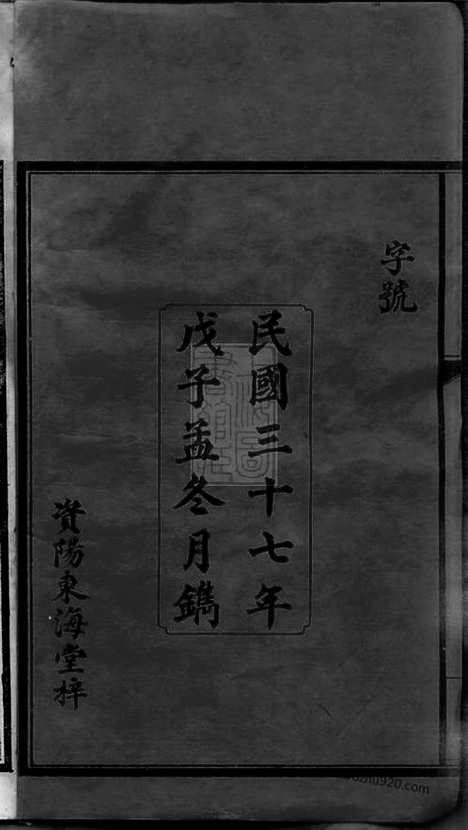 字號
民國三十七年
戊子孟冬月鐫
資陽東海堂梓